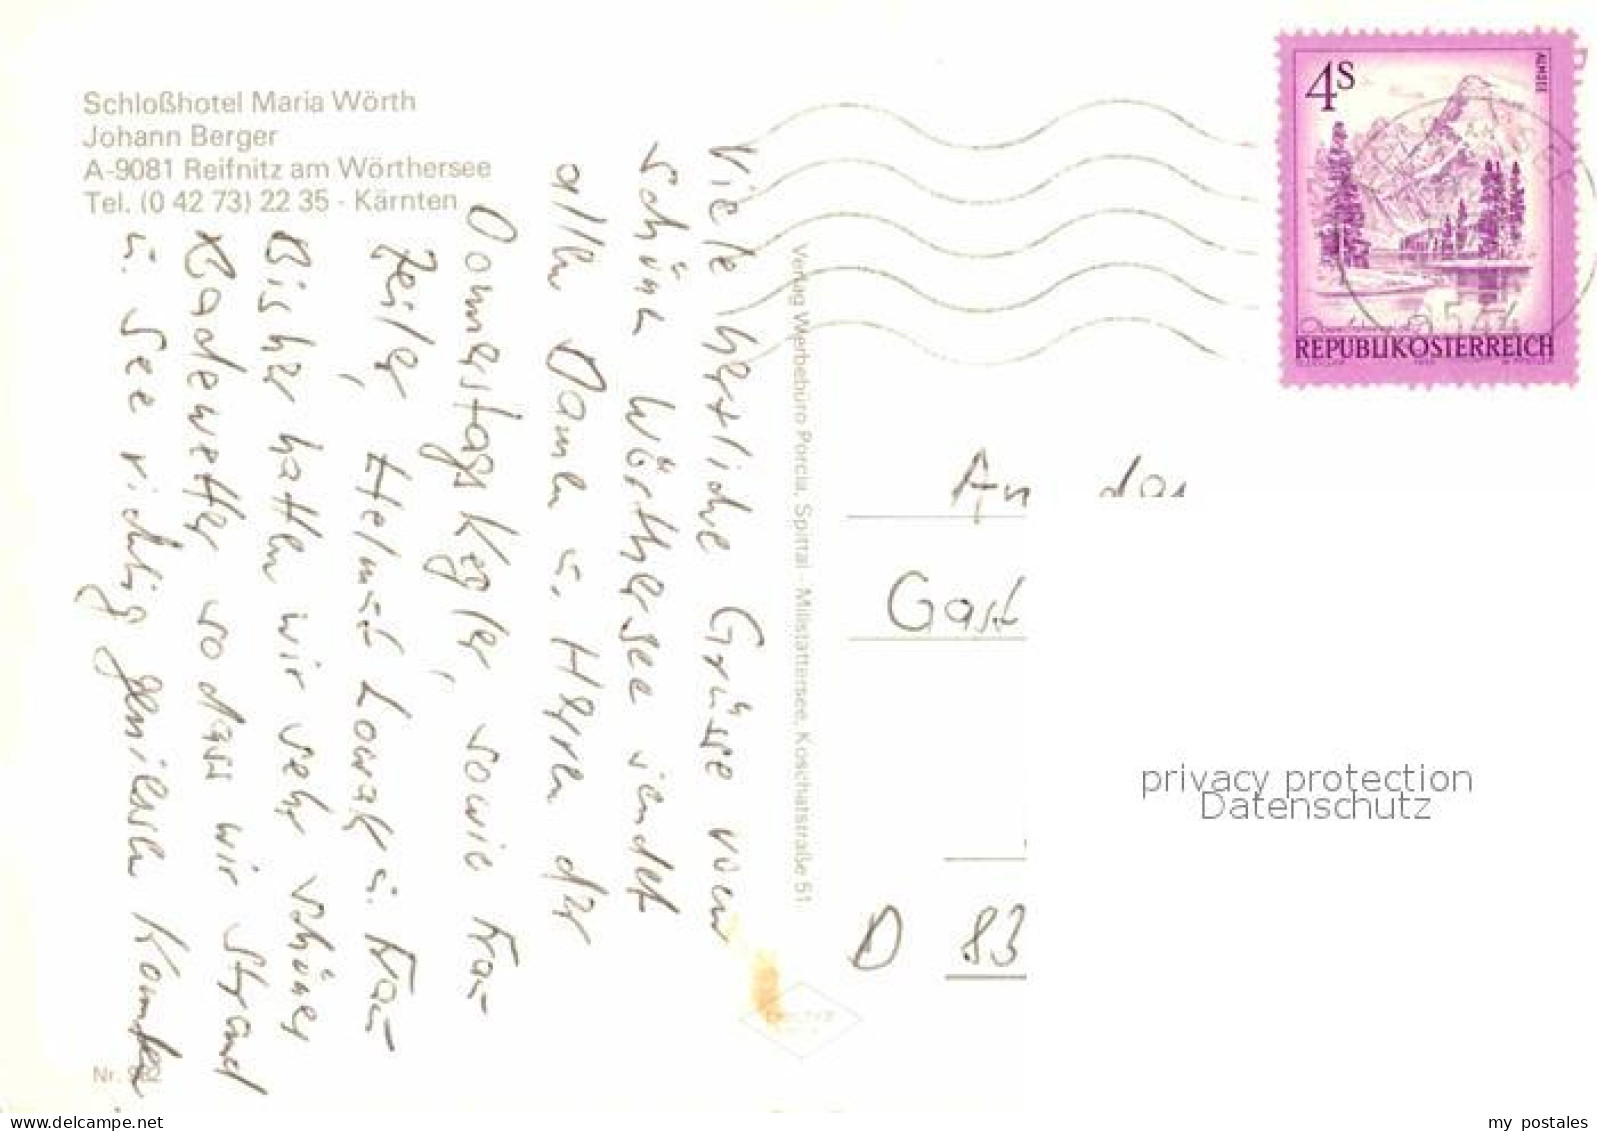 Schloßhotel Maria Wörth
Johann Berger
A-9081 Reifnitz am Wörthersee
Tel. (0 42 73) 22 35 - Kärnten
Viele herzliche Grüsse vom
schönen Wörthersee sendet
allen Damen u. Herren der
Donnerstagskegler, sowie Frau
Helmut u. Frau
Bisher hatten wir sehr schönes
Badewetter so dass wir Strand
u. See richtig geniessen konnten.
Nr.
Verlag Werbebüro Porcia, Spittal - Millstättersee, Koschatstraße 51
4S
ALMSEE
REPUBLIK ÖSTERREICH
An das
Gast
D 83
privacy protection
Datenschutz
my postales